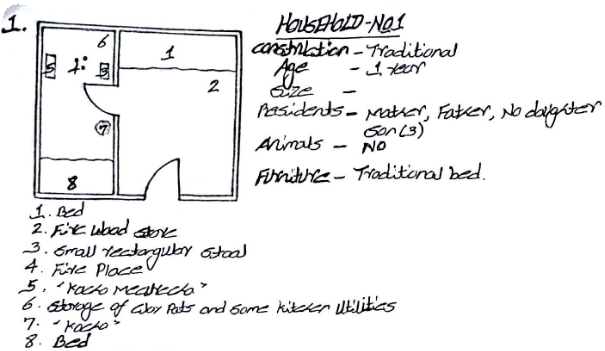 1.
HOUSEHOLD-NO1
Construction - Traditional
Age - 1 Year
Size -
Residents - Mother, Father, No daughter
Son (3)
Animals - NO
Furniture - Traditional bed.
6
1
5
4
3
2
7
8
1. Bed
2. Fire wood store
3. Small rectangular stool
4. Fire Place
5. "Kocho
6. Storage of Clay Pots and some kitchen Utilities
7. "Kocho"
8. Bed